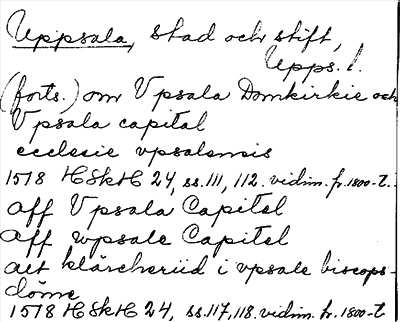 Uppsala, stad och stift,
Upps. l.
(forts.) om Vpsala Domkirkie och
Vpsala capital
ecclesie vpsalensis
1578 HSkH 24, ss. 111, 112. vidim. fr. 1800-t.
aff Vpsala Capitel
aff wpsale Capitel
aet klärcheriid i vpsale biscops-
döme
1578 HSkH 24, ss. 117, 118. vidim. fr. 1800-t